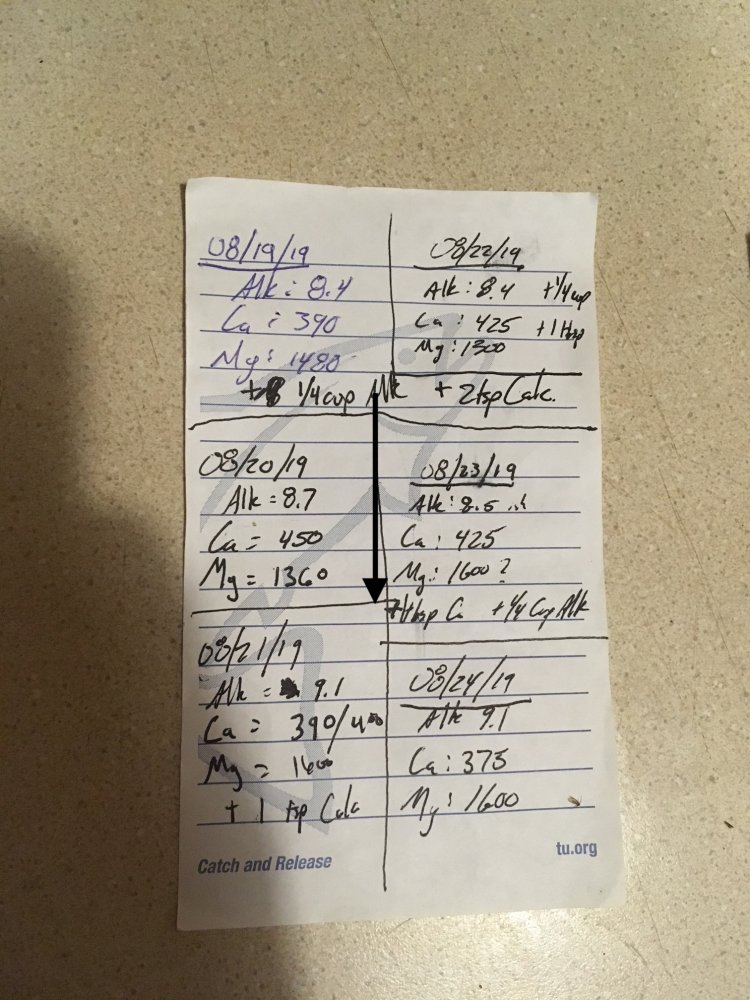 08/19/19
Alk: 8.4
Ca: 390
Mg: 1480
+ 1/4 cup Alk + 2tsp Calc.
08/20/19
Alk = 8.7
Ca = 450
Mg = 1360
08/21/19
Alk = 9.1
Ca = 390/400
Mg = 1600
+ 1 tsp Calc
08/22/19
Alk: 8.4 +1/4cup
Ca: 425 +1
Mg: 1300
08/23/19
Alk: 8.5
Ca: 425
Mg: 1600?
Ca +1/4 Cup Alk
08/24/19
Alk 9.1
Ca: 375
Mg: 1600
Catch and Release
tu.org